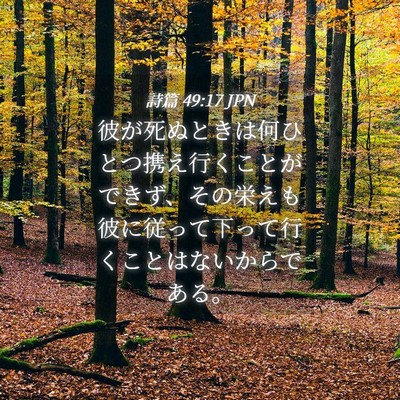 詩篇 49:17 JPN
彼が死ぬときは何ひ
とつ携え行くことが
できず、その栄えも
彼に従って下って行
くことはないからで
ある。